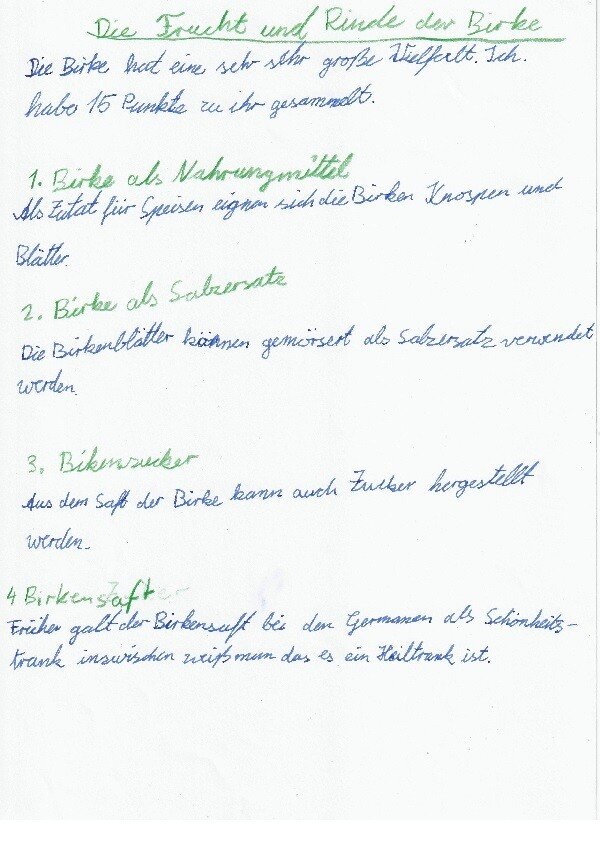 Die Frucht und Rinde der Birke
Die Birke hat eine sehr sehr große Vielfalt. Ich
habe 15 Punkte zu ihr gesammelt.
1. Birke als Nahrungmittel
Als Zutat für Speisen eignen sich die Birken Knospen und
Blätter.
2. Birke als Salzersatz
Die Birkenblätter können gemörsert als Salzersatz verwendet
werden.
3. Bikenzucker
Aus dem Saft der Birke kann auch Zucker hergestellt
werden.
4 Birkensaft
Früher galt der Birkensaft bei den Germanen als Schönheits-
trank inzwischen weiß man das es ein Heiltrank ist.